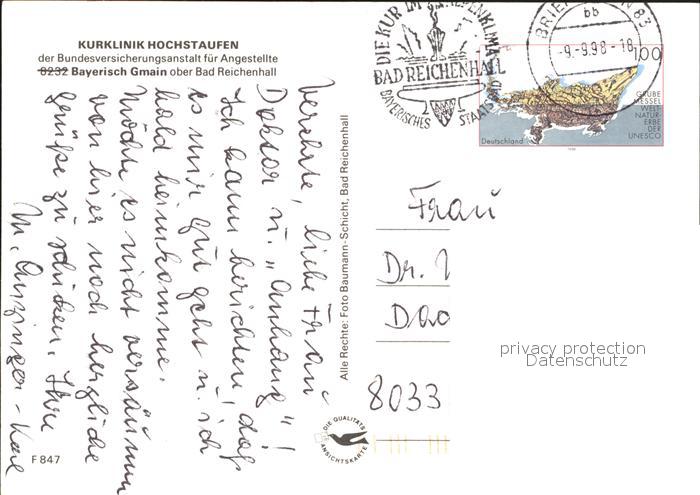 KURKLINIK HOCHSTAUFEN
der Bundesversicherungsanstalt für Angestellte
8232 Bayerisch Gmain ober Bad Reichenhall
Verehrte, liebe Frau
Doktor u. „Anhang"!
Ich kann berichten, daß
es mir gut geht u. ich
bald heimkomme.
Möchte es nicht versäumen
von hier noch herzliche
Grüße zu schicken. Ihre
M.
F 847
Alle Rechte: Foto Baumann-Schicht, Bad Reichenhall
DIE QUALITÄTS
ANSICHTSKARTE
DIE KUR IM ALPENKLIMA
BAD REICHENHALL
BAYERISCHES STAATSBAD
BRIEFZENTRUM 83
bb
-9.-9.98-18
100
GRUBE
MESSEL
WELT-
NATUR-
ERBE
DER
UNESCO
Deutschland
Frau
Dr.
8033
privacy protection
Datenschutz